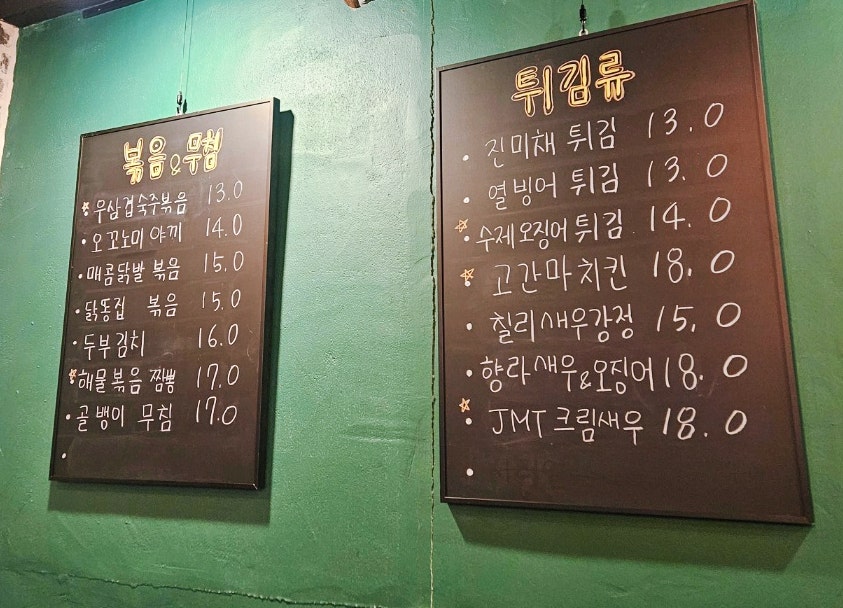 볶음&무침
우삼겹숙주볶음 13.0
오꼬노미야끼 14.0
매콤닭발 볶음 15.0
닭똥집 볶음 15.0
두부김치 16.0
해물볶음 짬뽕 17.0
골뱅이 무침 17.0
튀김류
진미채 튀김 13.0
열빙어 튀김 13.0
수제오징어튀김 14.0
고간마치킨 18.0
칠리새우강정 15.0
향라새우&오징어 18.0
JMT크림새우 18.0